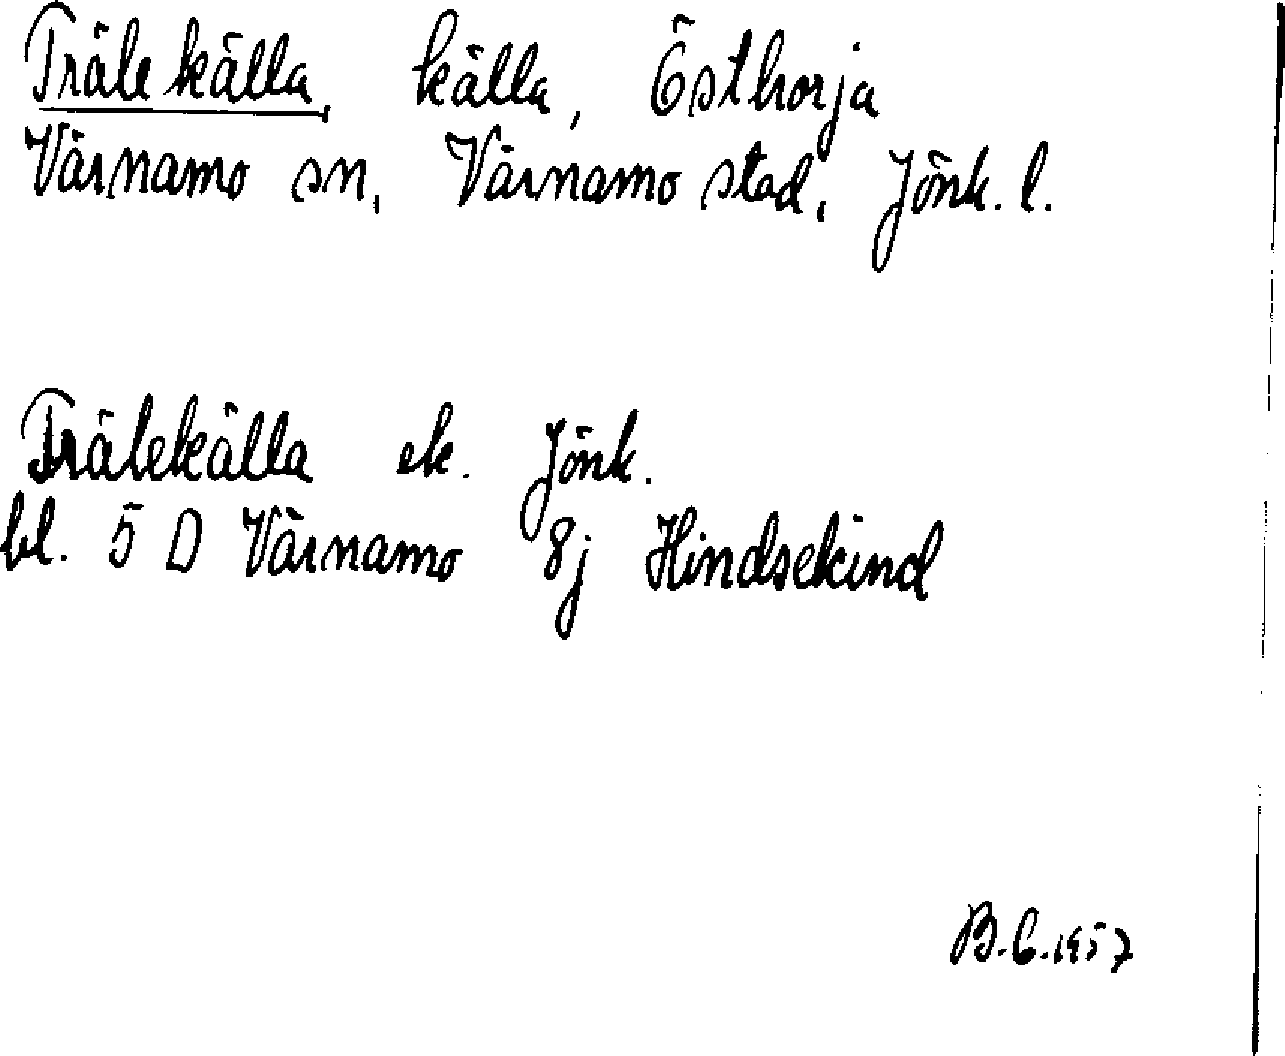 Träle källa, källa, Östhorja
Värnamo sn, Värnamo stad, Jönk. l.
Trälekälla ek. Jönk.
bl. 5 D Värnamo 8j Hindsekind
B.C. 1957